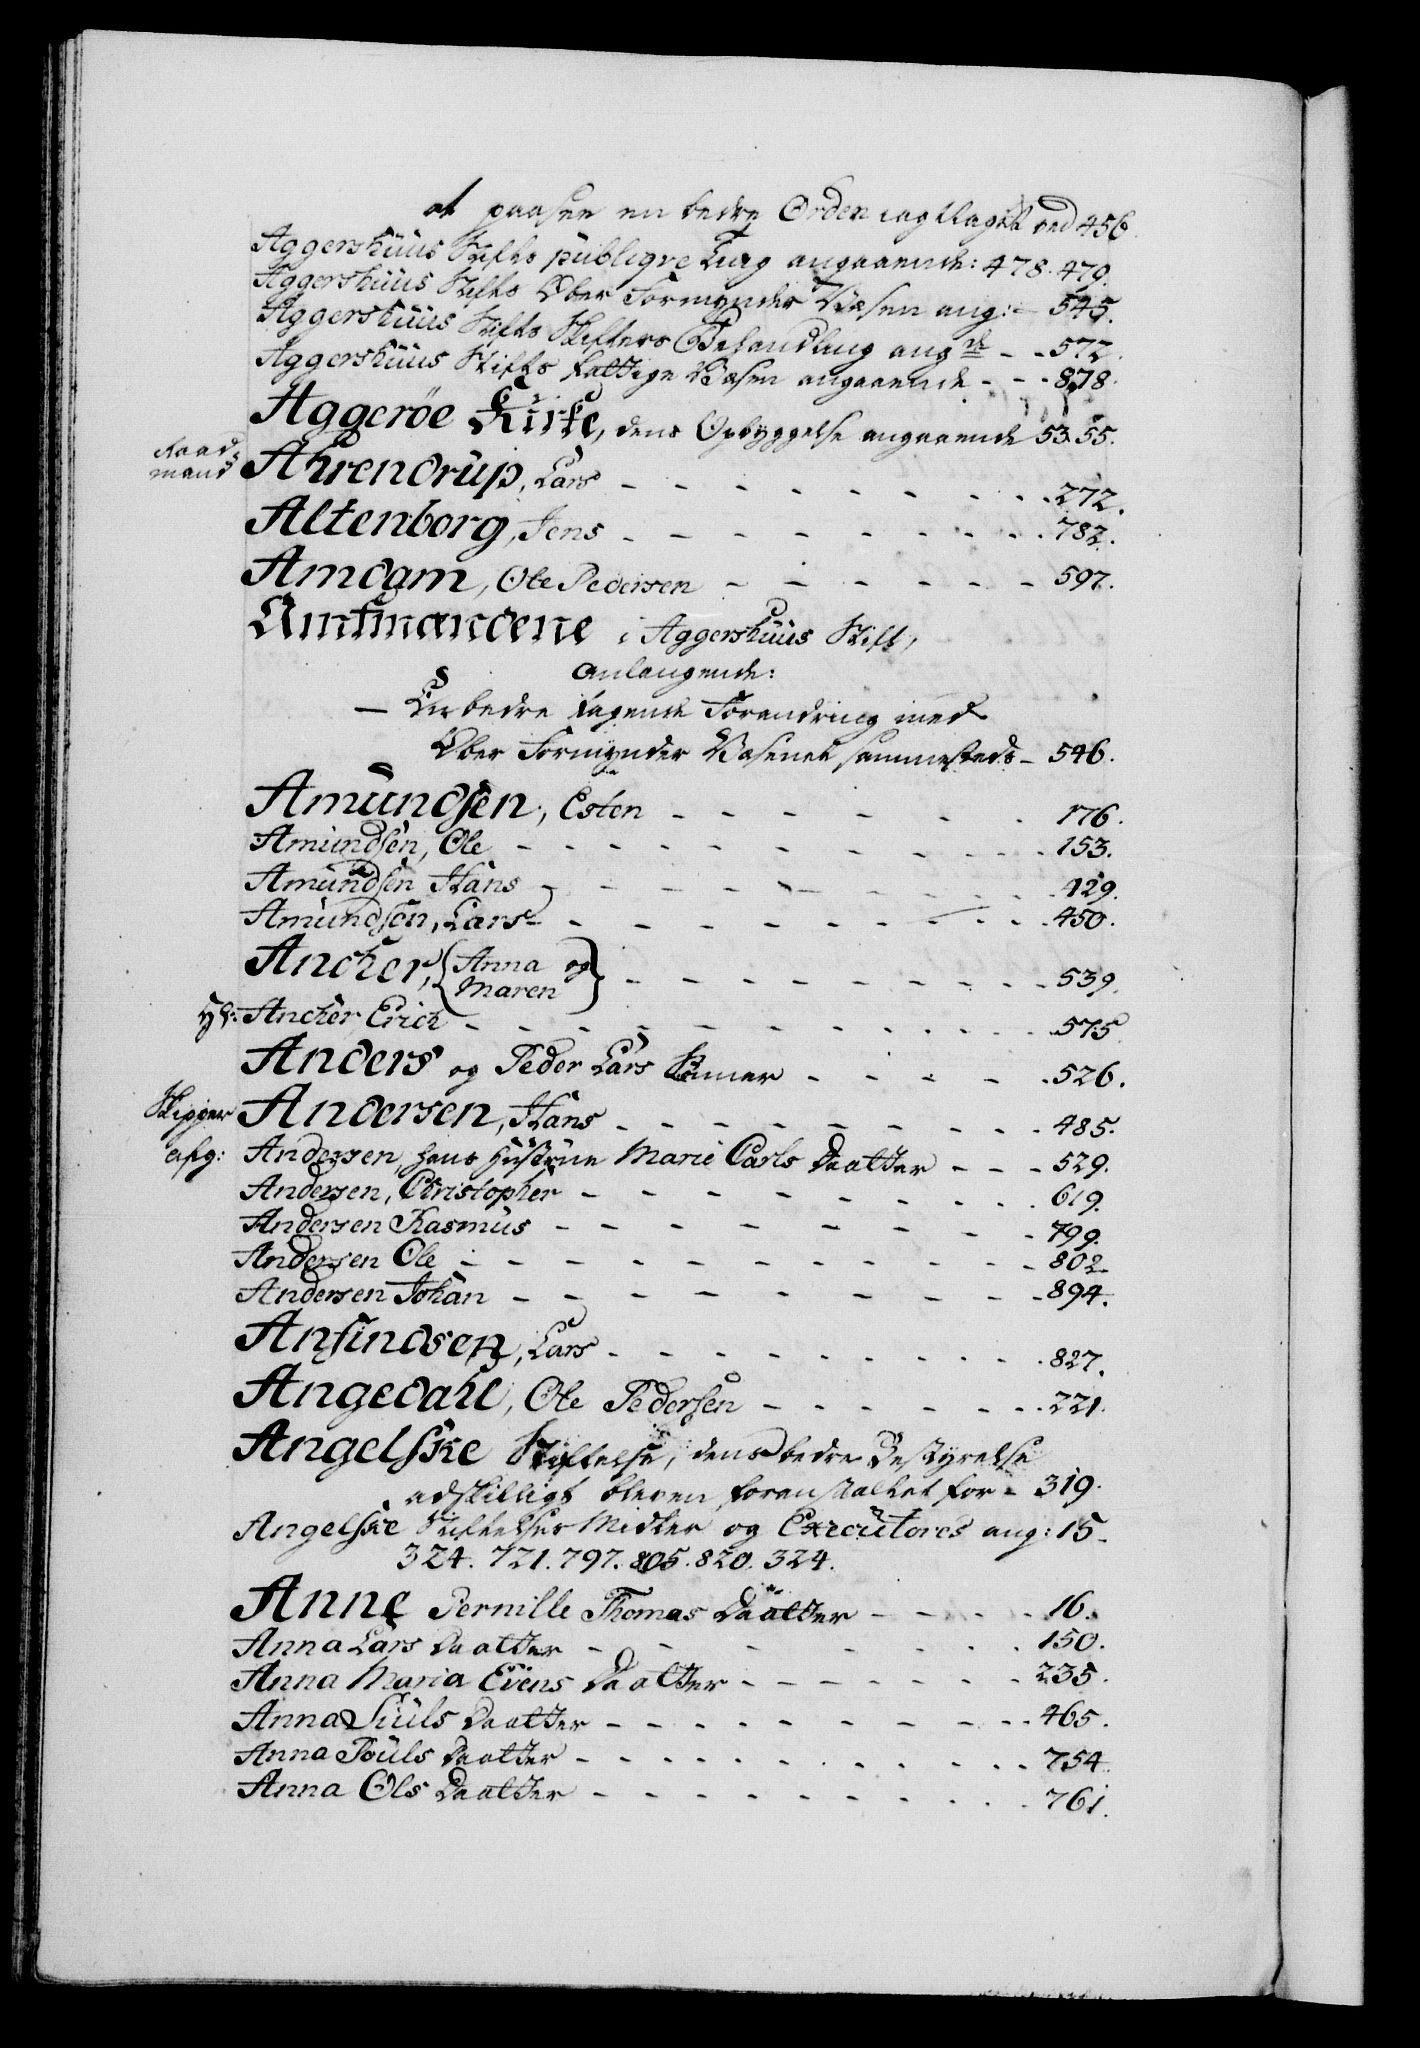 at paasee en bedre Orden iagttaget ved 456.
Aggershuus Stifts publiqve Laug angaaende: 478. 479.
Aggershuus Stifts Ober Formynder Væsen ang: - 545.
Aggershuus Stifts Skifters Behandling angde - - 572.
Aggershuus Stifts Fattige Væsen angaaende - - - 878.
Aggerøe Kirke, dens Opbyggelse angaaende 53. 55.
Raad-
mand Ahrendrup, Lars - - - - - - - - - 272.
Altenborg, Jens - - - - - - - - - 782.
Amdam, Ole Pedersen - - - - - - 597.
Amtmændene i Aggershuus Stift,
anlangende:
— En bedre Forandring med
Ober Formynder Væsenet sammesteds - 546.
Amundsen, Esten - - - - - - - 176.
Amundsen, Ole - - - - - - - - - - 153.
Amundsen Hans - - - - - - - - - 429.
Amundsen, Lars - - - - - - - - - 450.
Ancher, { Anna og
Maren } - - - - - - - - - 539.
Hr: Ancher Erich - - - - - - - - - - - 575
Anders og Peder Lars Sønner - - - - - 526.
Skipper Andersen, Hans - - - - - - - - - 485.
afg: Andersen, hans Hustrue Marie Carls Daatter - - - 529.
Andersen, Christopher - - - - - - - - 619.
Andersen Rasmus - - - - - - - - 799.
Andersen Ole - - - - - - - - - - 802.
Andersen Johan - - - - - - - - - 894.
Ansindsen, Lars - - - - - - - - - 827.
Angedahl, Ole Pedersen - - - - - - - 221.
Angelske Stiftelse, dens bedre Bestyrelse
adskilligt bleven foranstaltet for - 319.
Angelske Stiftelses Midler og Executores ang: 15.
324. 721. 797. 805. 820. 324.
Anne Pernille Thomas Daatter - - - - 16.
Anna Lars Daatter - - - - - - - - 150.
Anna Maria Evens Daatter - - - - - - - 235.
Anna Juuls Daatter - - - - - - - - - 465.
Anna Pouls Daatter - - - - - - - - - 754.
Anna Ols Daatter - - - - - - - - - 761.